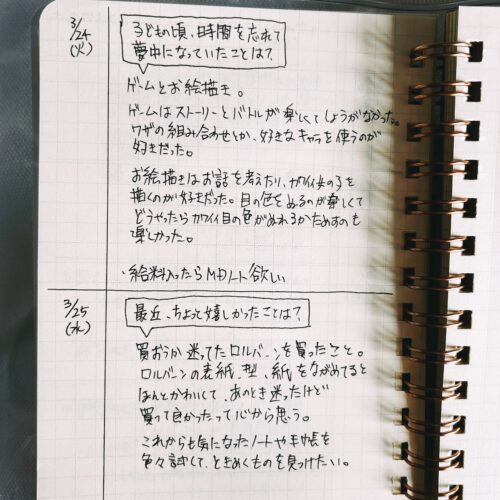 3/24
(火)
子どもの頃、時間を忘れて
夢中になっていたことは?
ゲームとお絵描き。
ゲームはストーリーとバトルが楽しくてしょうがなかった。
ワザの組み合わせとか、好きなキャラを使うのが
好きだった。
お絵描きはお話を考えたり、カワイイ女の子を
描くのが好きだった。目の色をぬるのが楽しくて
どうやったらカワイイ目の色がぬれるかためすのも
楽しかった。
・給料入ったらMDノート欲しい
3/25
(水)
最近、ちょっと嬉しかったことは?
買おうか迷ってたロルバーンを買ったこと。
ロルバーンの表紙、型、紙をながめてると
ほんとかわいくて、あのとき迷ったけど
買って良かったって心から思う。
これからも気になったノートや手帳を
色々試して、ときめくものを見つけたい。